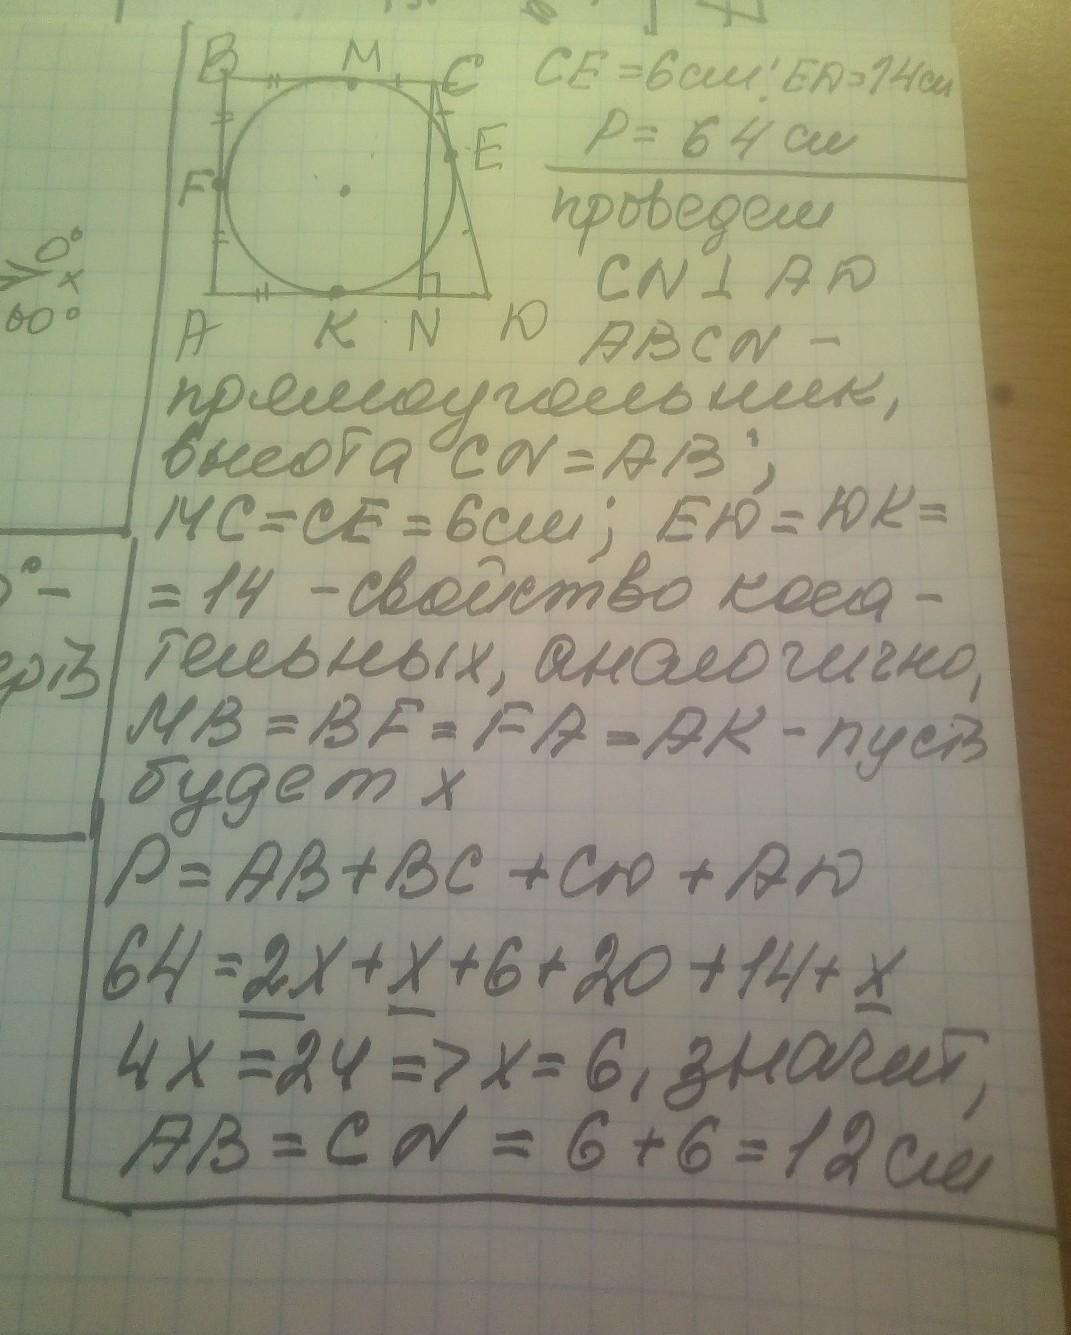 B M C
CE = 6см; ЕД = 14см
P = 64 см
F E
0°
x
60°
A K N Д
проведем
CN ⊥ АД
ABCN -
прямоугольник,
высота CN = AB;
MC = CE = 6см; ЕД = ДК =
= 14 - свойство каса -
тельных, аналогично,
MB = BF = FA = AK - пусть
будет x
P = AB + BC + CД + AД
64 = 2x + x + 6 + 20 + 14 + x
4x = 24 => x = 6, значит,
AB = CN = 6 + 6 = 12 см